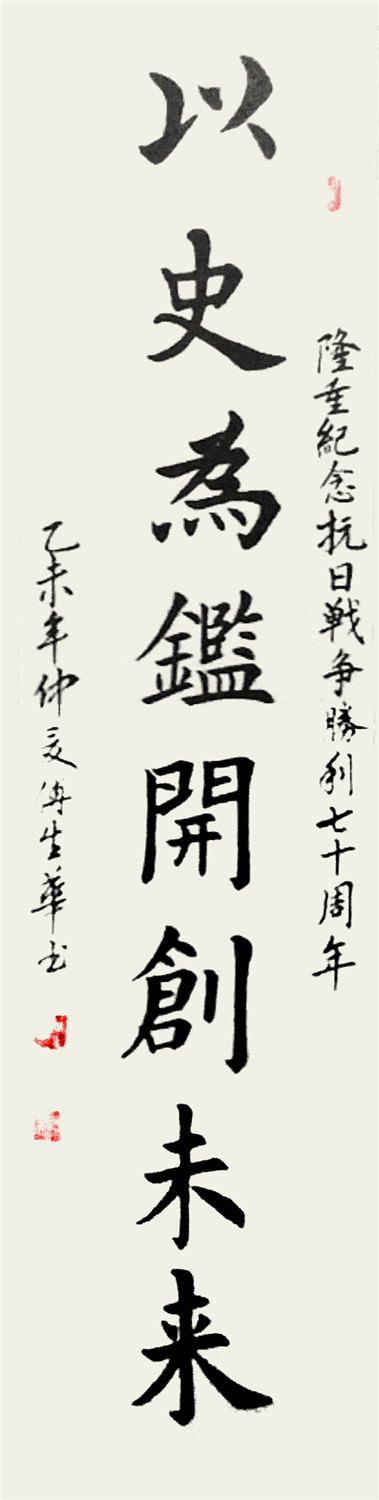 隆重紀念抗日戦争勝利七十周年
以史為鑑開創未来
乙未年仲夏傅生華书